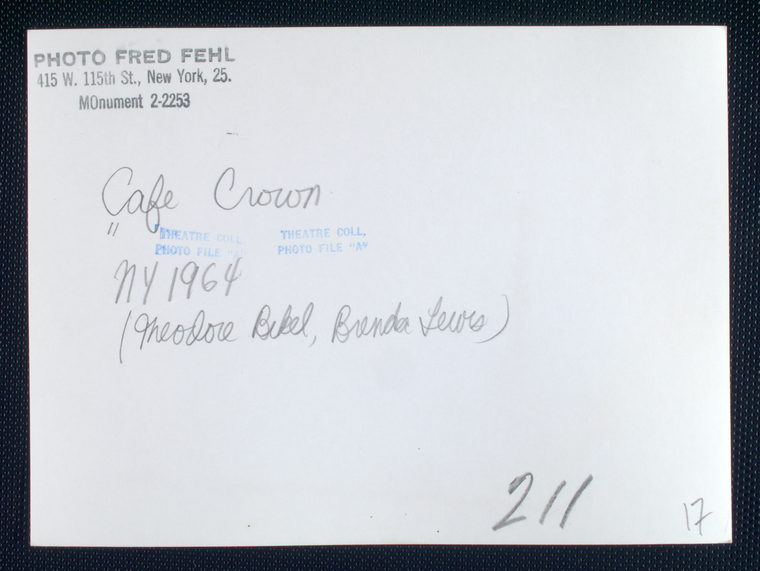 PHOTO FRED FEHL
415 W. 115th St., New York, 25.
MOnument 2-2253
Cafe Crown
"
THEATRE COLL. THEATRE COLL.
PHOTO FILE "A" PHOTO FILE "A"
NY 1964
(Theodore Bikel, Brenda Lewis)
211
17